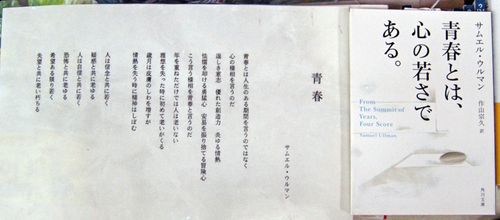 サムエル・ウルマン
青春とは、
心の若さで
ある。
作山宗久 訳
From
The Summit of
Years,
Four Score
Samuel Ullman
角川文庫
青春
サムエル・ウルマン
青春とは人生のある期間を言うのではなく
心の様相を言うのだ
逞しき意志 優れた創造力 炎ゆる情熱
怯懦を却ける勇猛心 安易を振り捨てる冒険心
こう言う様相を青春と言うのだ
年を重ねただけでは人は老いない
理想を失った時に初めて老いがくる
歳月は皮膚のしわを増すが
情熱を失う時に精神はしぼむ
人は信念と共に若く
疑惑と共に老ゆる
人は自信と共に若く
恐怖と共に老ゆる
希望ある限り若く
失望と共に老い朽ちる